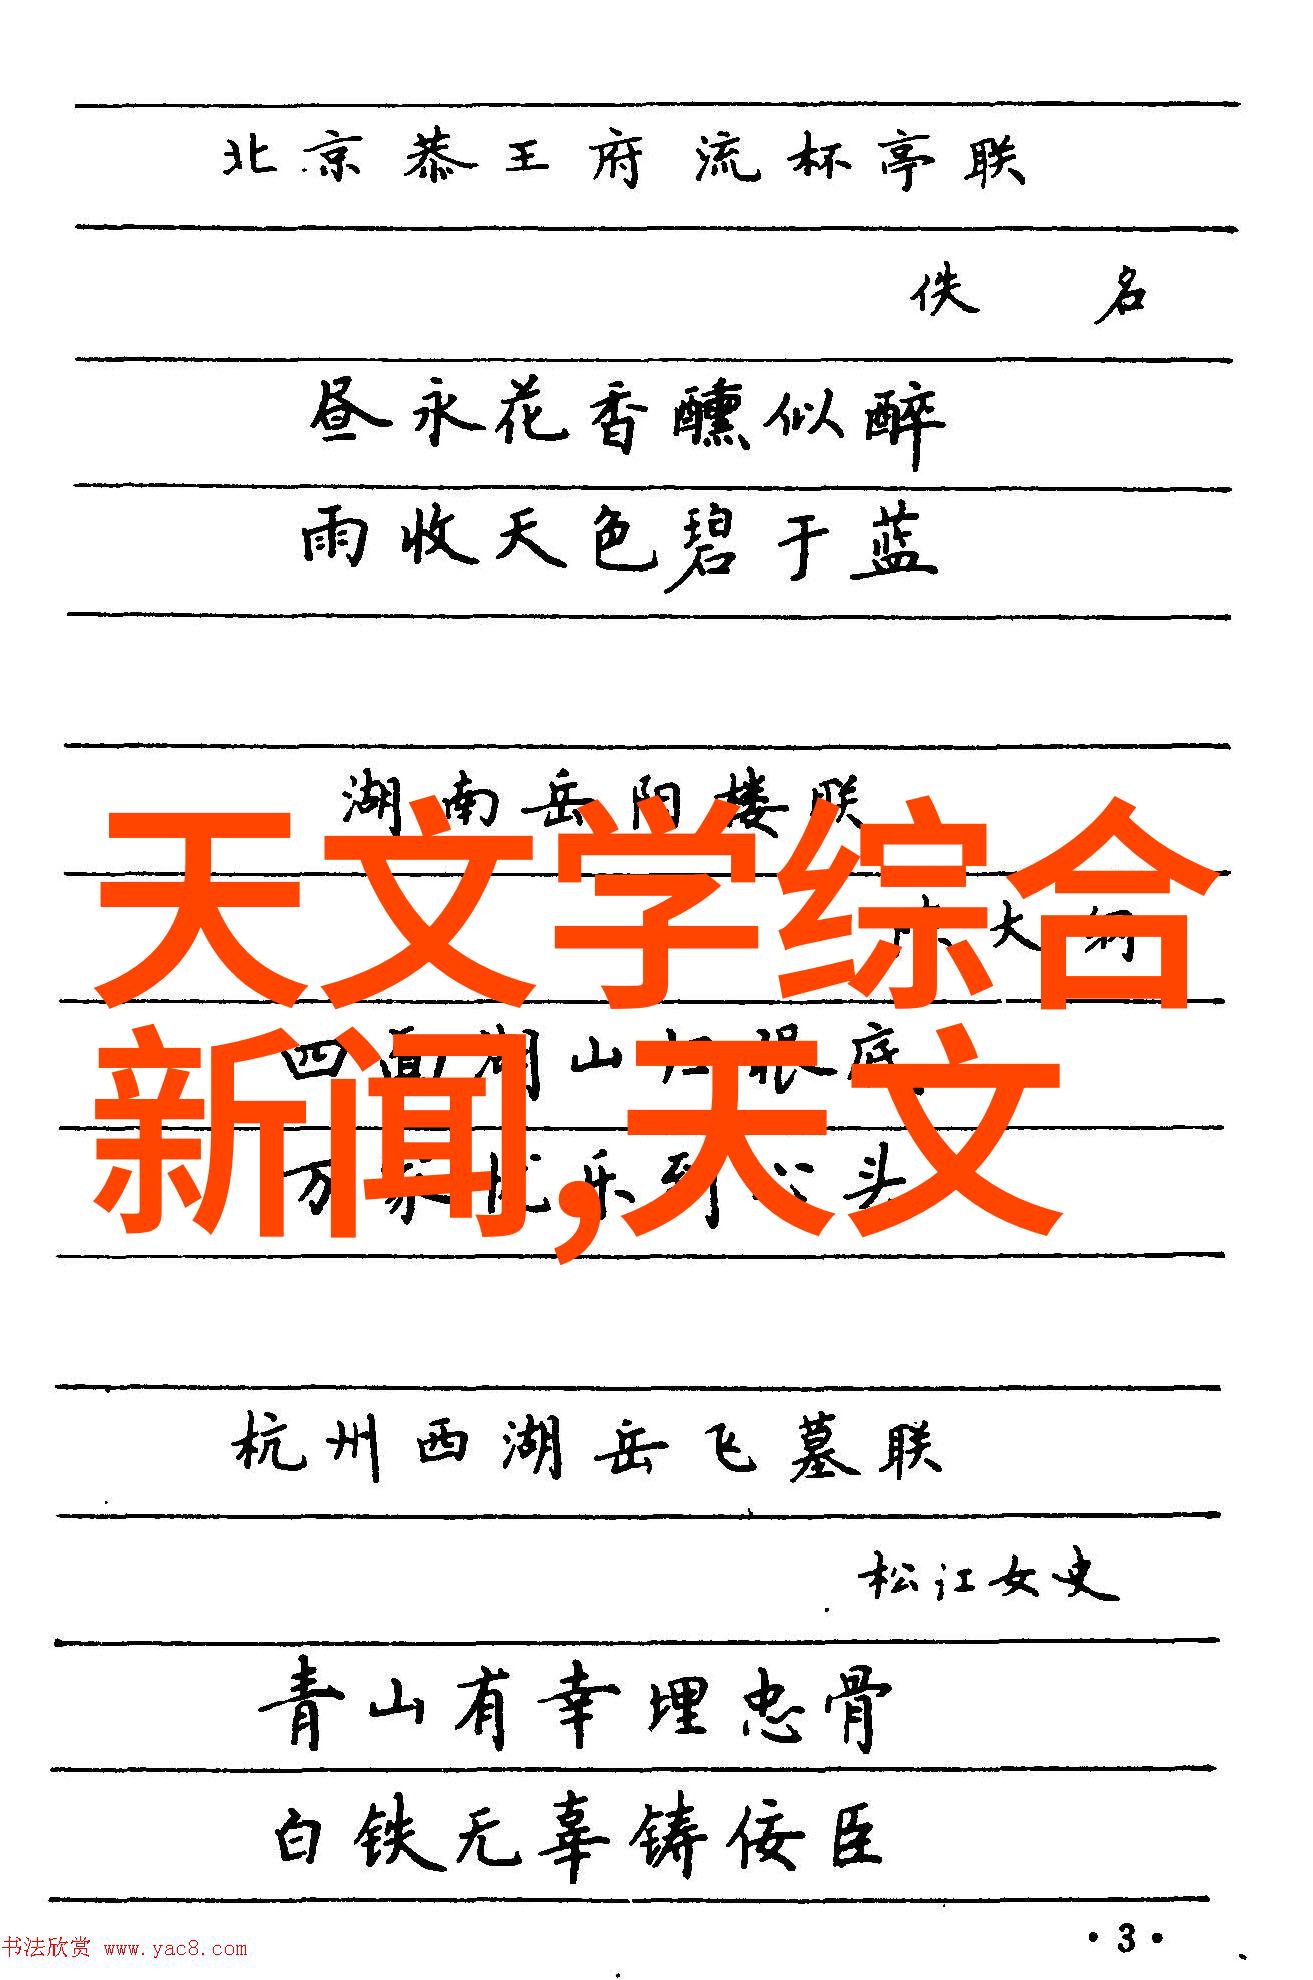 北京恭王府流杯亭联
佚 名
昼永花香醺似醉
雨收天色碧于蓝
湖南岳阳楼联
大
天文学综合
四面湖山归眼底
新闻,天文
万家忧乐到心头
杭州西湖岳飞墓联
松江女史
青山有幸埋忠骨
白铁无辜铸佞臣
·3·
书法欣赏 www.yac8.com